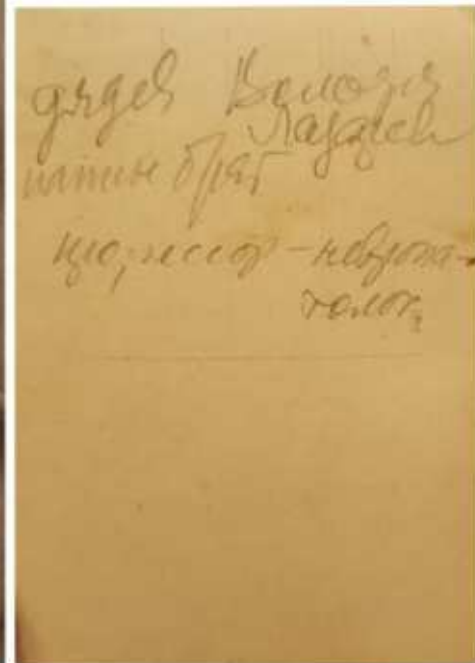 дядя Володя
Лазарев
мамин брат
профессор - невропа-
толог